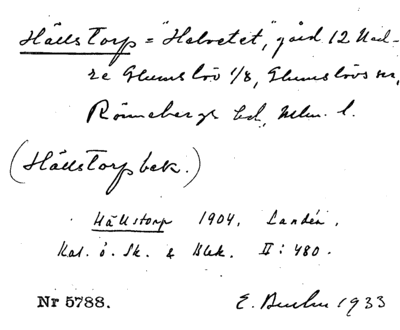 Hällstorp = "Helvetet", gård 12 Ned-
re Glumslöv 1/8, Glumslövs sn,
Rönnebergs hd, Mlm. l.
(Hällstorp bek.)
Hällstorp 1904, Landén,
Kat. ö. Sk. & Blek. II: 480.
Nr 5788. E. 1933